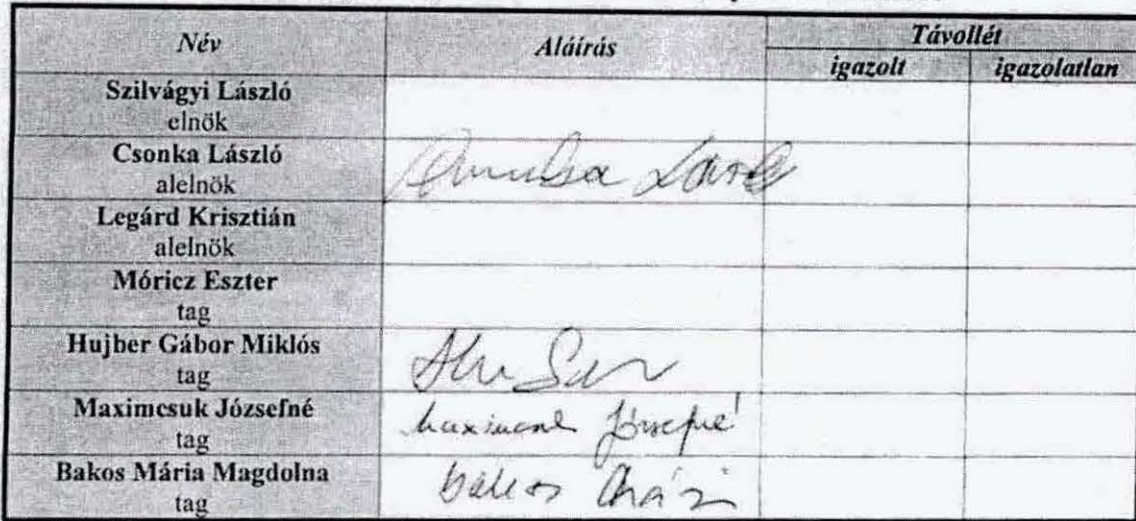 Név Aláírás Távollét
igazolt igazolatlan
Szilvágyi László
elnök
Csonka László
alelnök
Legárd Krisztián
alelnök
Móricz Eszter
tag
Hujber Gábor Miklós
tag
Maximcsuk Józsefné
tag
Józsefné
Bakos Mária Magdolna
tag
Bakos